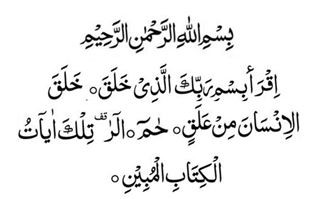 بِسْمِ اللهِ الرَّحْمٰنِ الرَّحِيْمِ
اِقْرَأْ بِسْمِ رَبِّكَ الَّذِىْ خَلَقَ ○ خَلَقَ
الْاِنْسَانَ مِنْ عَلَقٍ ○ حٰمٓ ○ الٓرٰ قف تِلْكَ اٰيَاتُ
الْكِتَابِ الْمُبِيْنِ ○